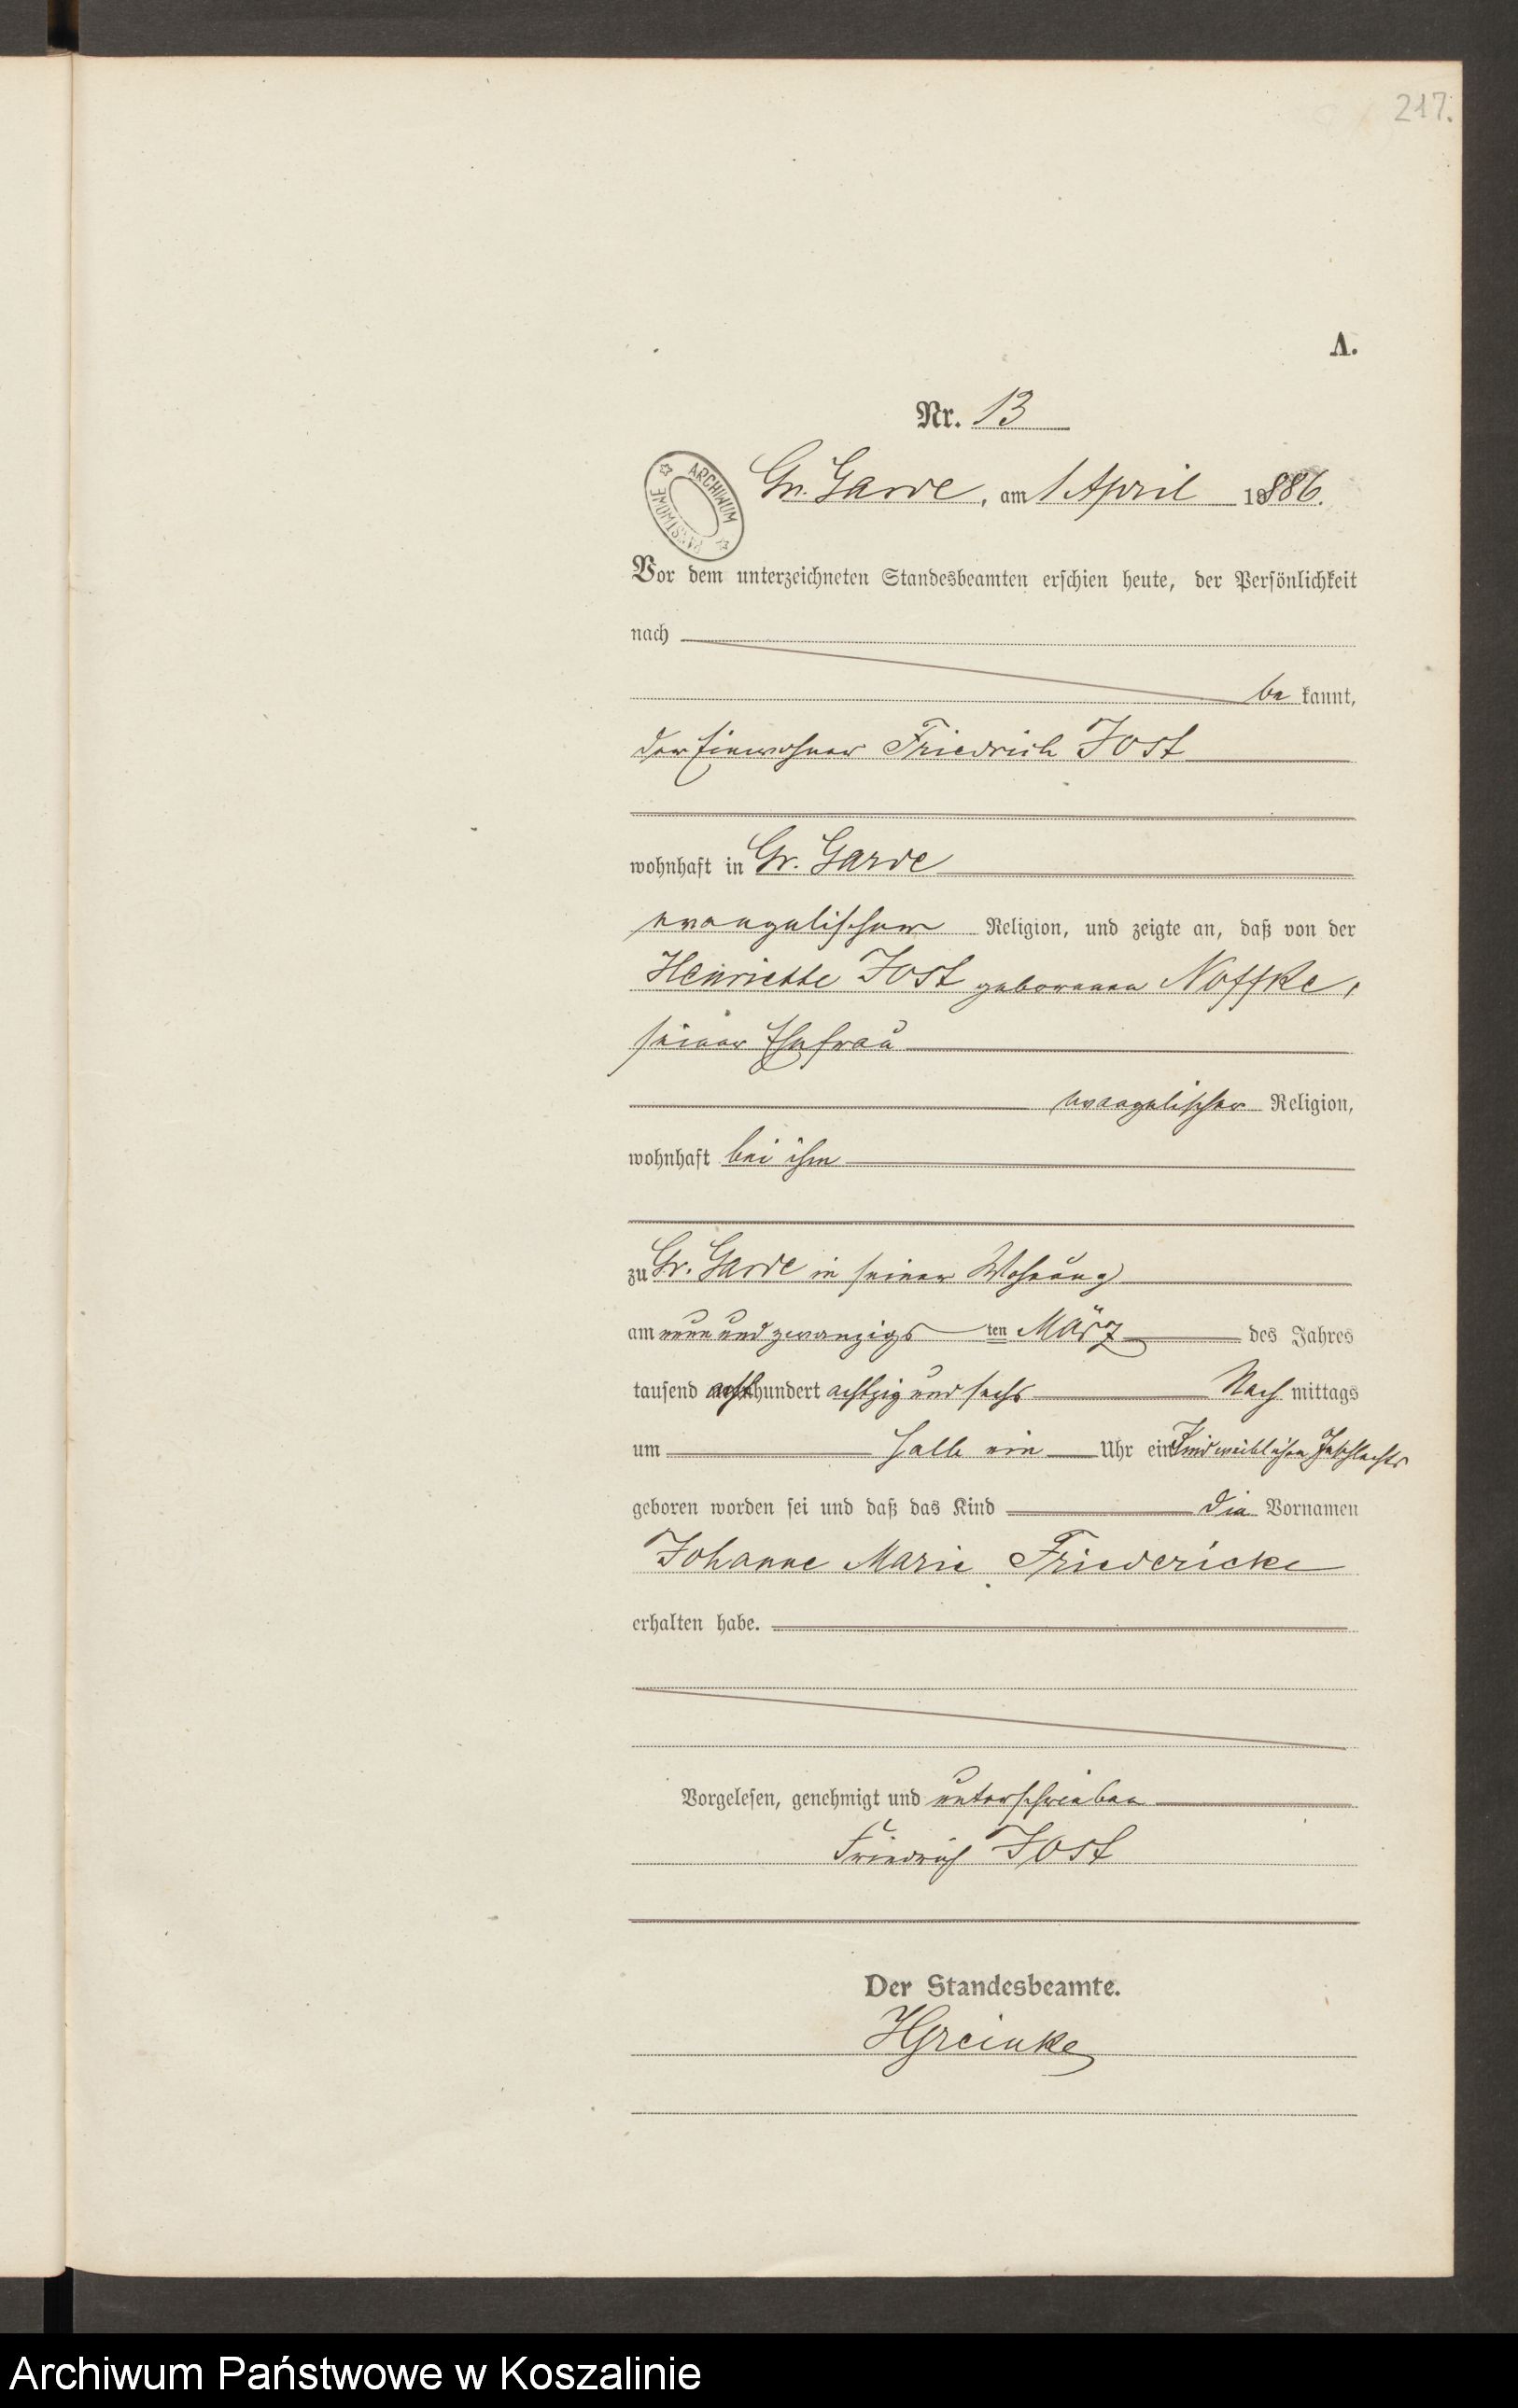 217.
A.
Nr. 13
ARCHIWUM PAŃSTWOWE
Gr. Garde, am 1 April 1886.
Vor dem unterzeichneten Standesbeamten erschien heute, der Persönlichkeit
nach
be kannt,
der Einwohner Friedrich Jost
wohnhaft in Gr. Garde
evangelischer Religion, und zeigte an, daß von der
Henriette Jost geborenen Noffke,
seiner Ehefrau
evangelischer Religion,
wohnhaft bei ihm
zu Gr. Garde in seiner Wohnung
am neun und zwanzigs ten März des Jahres
tausend acht hundert achtzig und sechs Nach mittags
um halb ein Uhr ein Kind weiblichen Geschlechts
geboren worden sei und daß das Kind die Vornamen
Johanne Marie Friedericke
erhalten habe.
Vorgelesen, genehmigt und unterschrieben
Friedrich Jost
Der Standesbeamte.
HGreinke
Archiwum Państwowe w Koszalinie